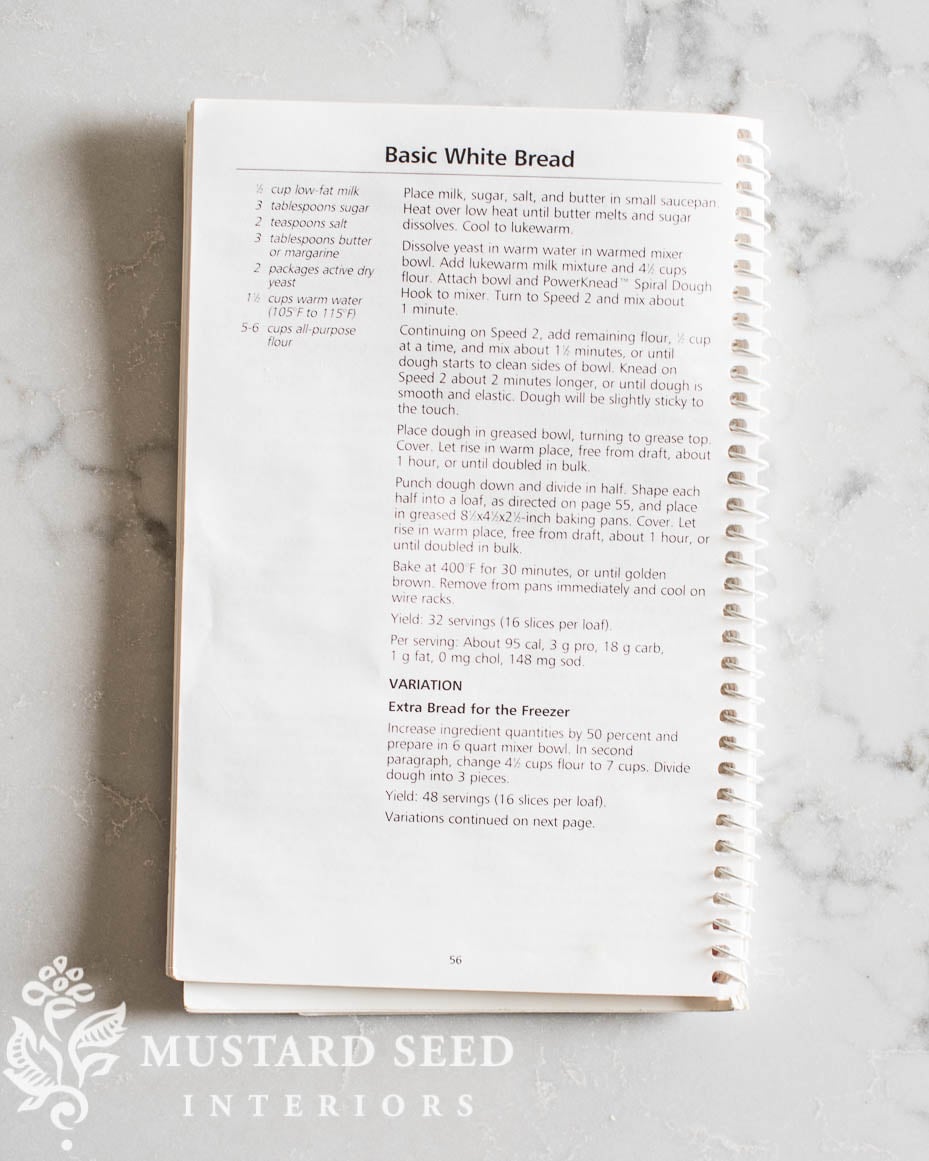 Basic White Bread
½ cup low-fat milk
3 tablespoons sugar
2 teaspoons salt
3 tablespoons butter
or margarine
2 packages active dry
yeast
1½ cups warm water
(105°F to 115°F)
5-6 cups all-purpose
flour
Place milk, sugar, salt, and butter in small saucepan.
Heat over low heat until butter melts and sugar
dissolves. Cool to lukewarm.
Dissolve yeast in warm water in warmed mixer
bowl. Add lukewarm milk mixture and 4½ cups
flour. Attach bowl and PowerKnead™ Spiral Dough
Hook to mixer. Turn to Speed 2 and mix about
1 minute.
Continuing on Speed 2, add remaining flour, ½ cup
at a time, and mix about 1½ minutes, or until
dough starts to clean sides of bowl. Knead on
Speed 2 about 2 minutes longer, or until dough is
smooth and elastic. Dough will be slightly sticky to
the touch.
Place dough in greased bowl, turning to grease top.
Cover. Let rise in warm place, free from draft, about
1 hour, or until doubled in bulk.
Punch dough down and divide in half. Shape each
half into a loaf, as directed on page 55, and place
in greased 8½x4½x2½-inch baking pans. Cover. Let
rise in warm place, free from draft, about 1 hour, or
until doubled in bulk.
Bake at 400°F for 30 minutes, or until golden
brown. Remove from pans immediately and cool on
wire racks.
Yield: 32 servings (16 slices per loaf).
Per serving: About 95 cal, 3 g pro, 18 g carb,
1 g fat, 0 mg chol, 148 mg sod.
VARIATION
Extra Bread for the Freezer
Increase ingredient quantities by 50 percent and
prepare in 6 quart mixer bowl. In second
paragraph, change 4½ cups flour to 7 cups. Divide
dough into 3 pieces.
Yield: 48 servings (16 slices per loaf).
Variations continued on next page.
56
MUSTARD SEED
INTERIORS